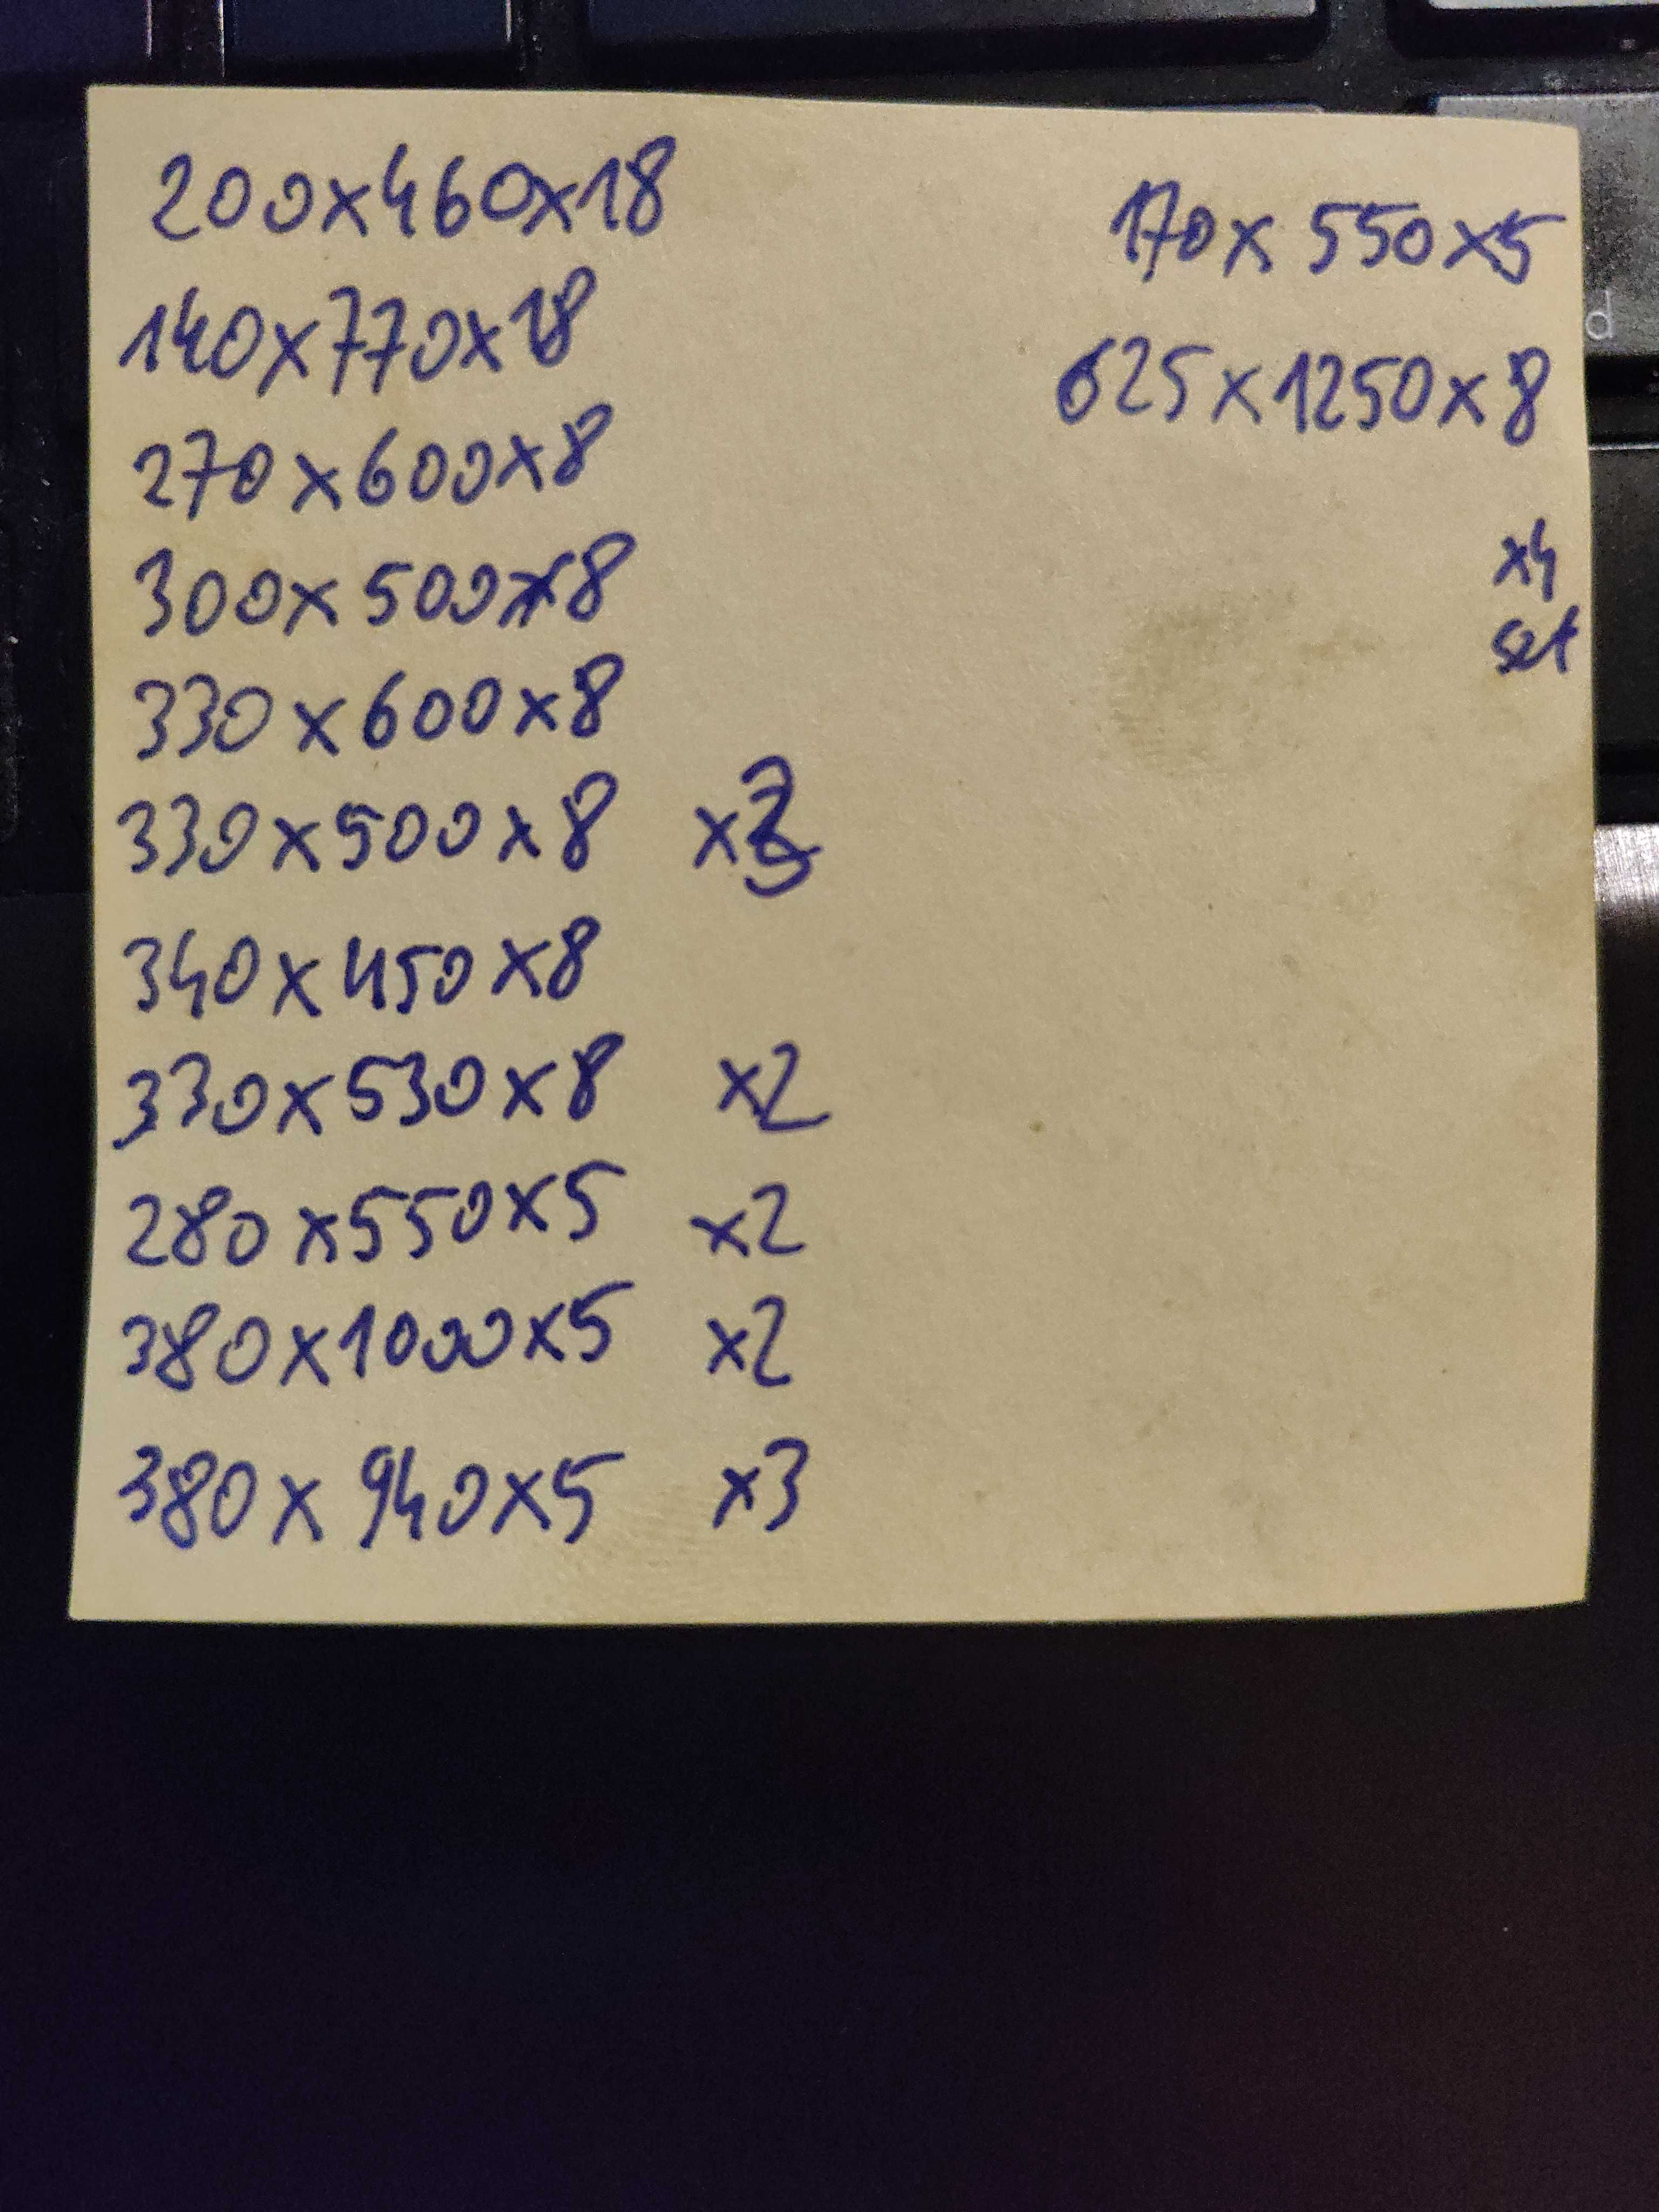 200x460x18
140x770x18
270x600x8
300x500x8
330x600x8
330x500x8 x3
340x450x8
330x530x8 x2
280x550x5 x2
380x1000x5 x2
380x940x5 x3
170x550x5
625x1250x8
x4
set
d